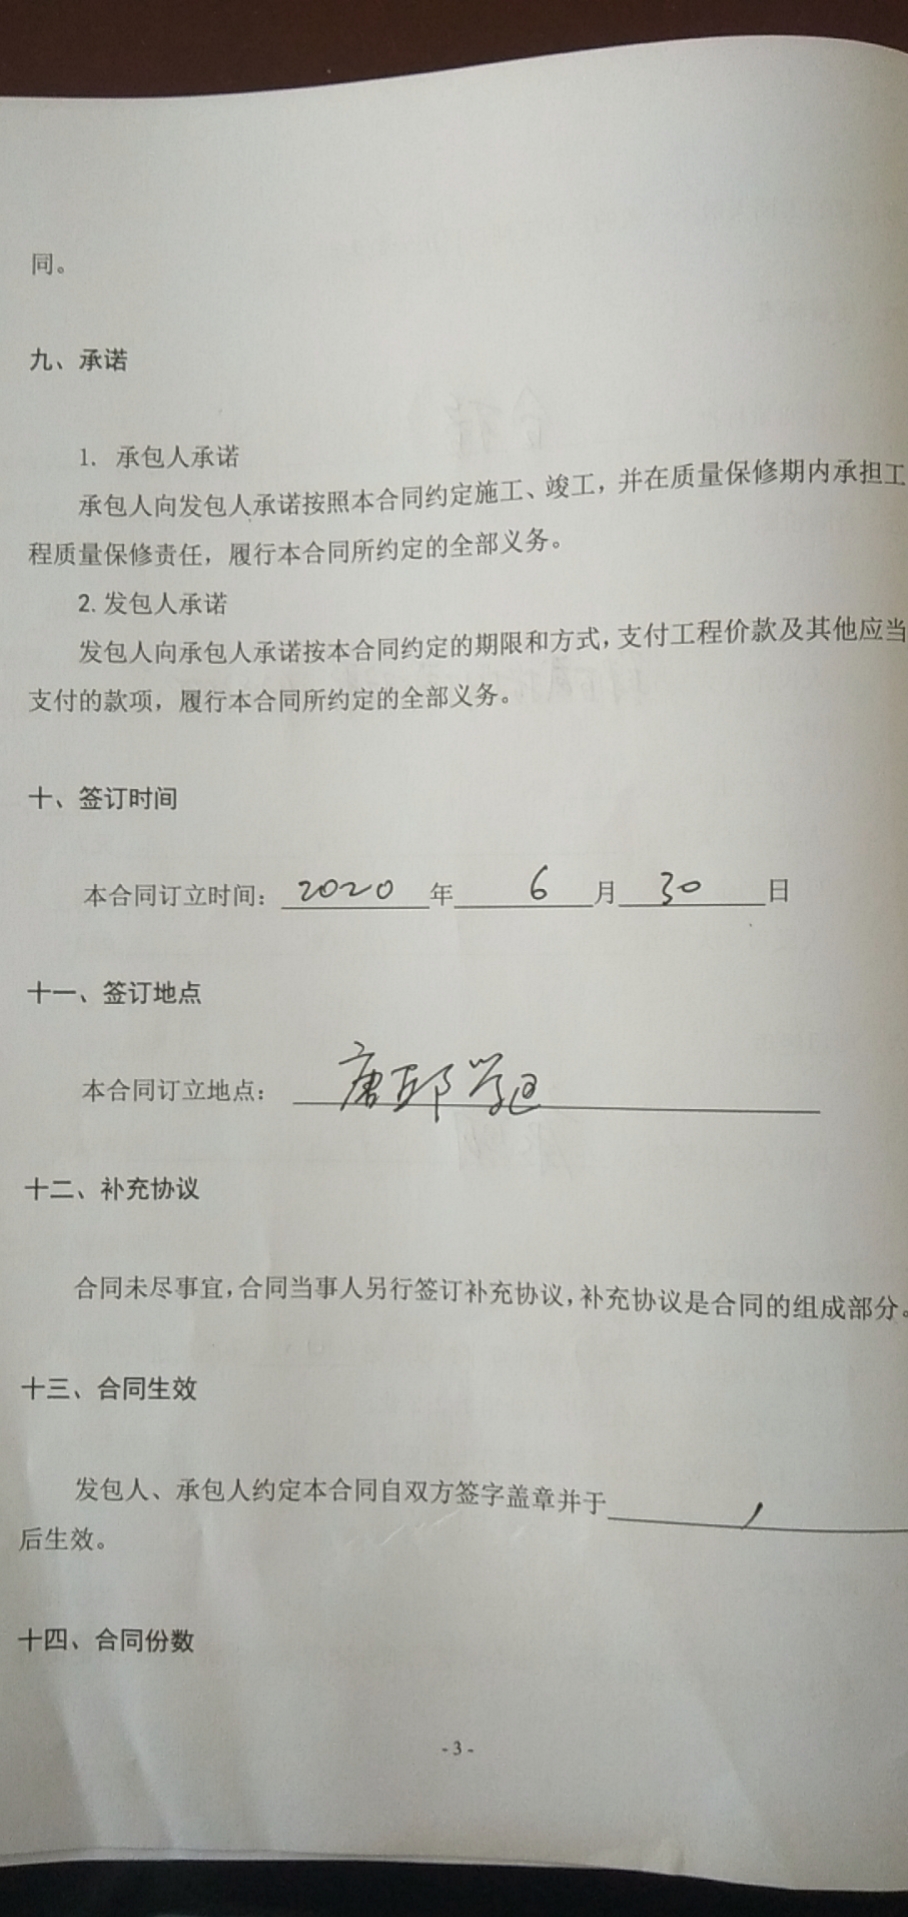 同。
九、承诺
1. 承包人承诺
承包人向发包人承诺按照本合同约定施工、竣工，并在质量保修期内承担工
程质量保修责任，履行本合同所约定的全部义务。
2. 发包人承诺
发包人向承包人承诺按本合同约定的期限和方式，支付工程价款及其他应当
支付的款项，履行本合同所约定的全部义务。
十、签订时间
本合同订立时间：2020年6月30日
十一、签订地点
本合同订立地点：唐邱学
十二、补充协议
合同未尽事宜，合同当事人另行签订补充协议，补充协议是合同的组成部分。
十三、合同生效
发包人、承包人约定本合同自双方签字盖章并于
后生效。
十四、合同份数
- 3 -